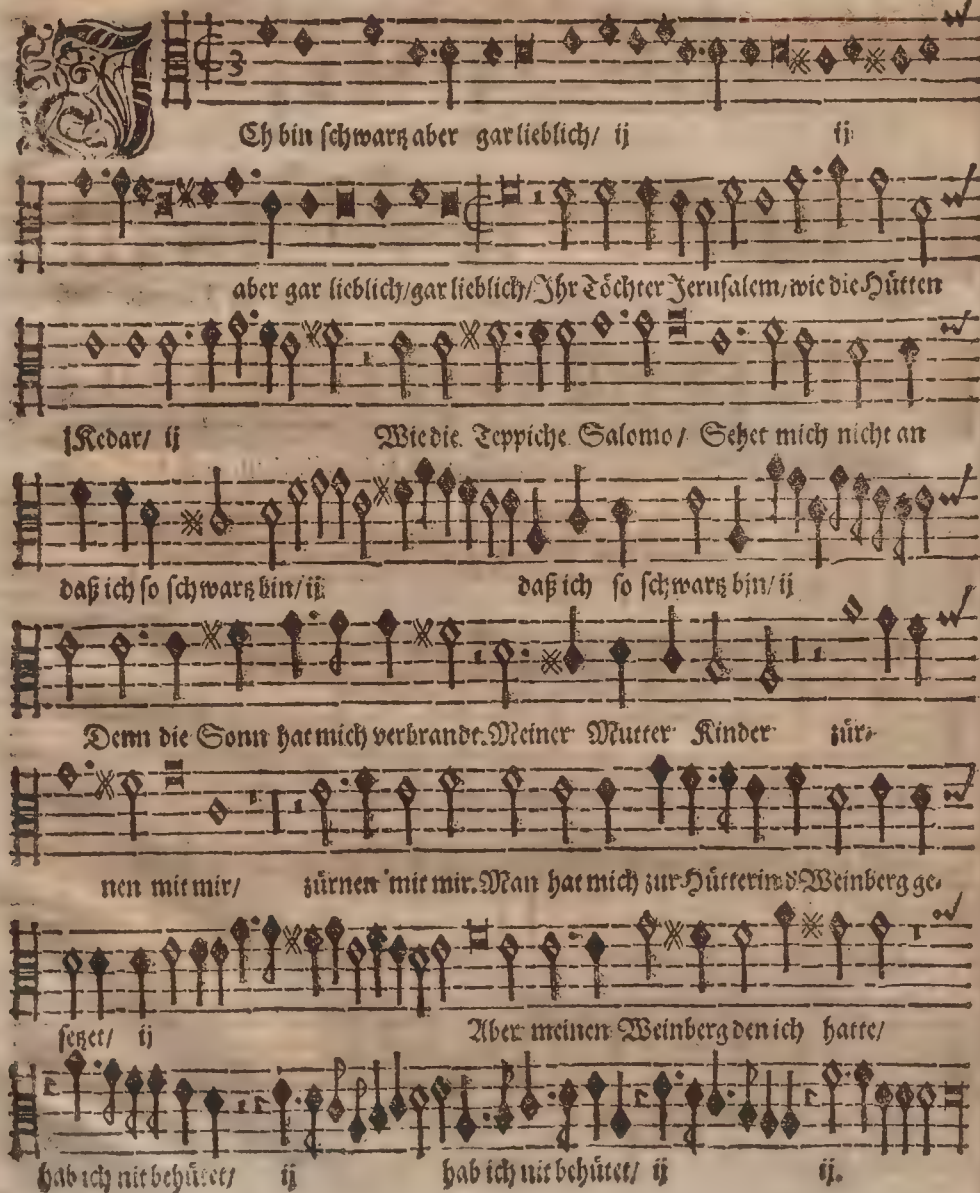 ICh bin schwartz aber gar lieblich/ ij ij
aber gar lieblich/gar lieblich/Ihr Töchter Jerusalem/wie die Hütten
Kedar/ ij Wie die Teppiche Salomo/ Sehet mich nicht an
daß ich so schwartz bin/ij daß ich so schwartz bin/ ij
Denn die Sonn hat mich verbrandt. Meiner Mutter Kinder zür-
nen mit mir/ zürnen mit mir. Man hat mich zur Hütterin d. Weinberg ge-
setzet/ ij Aber meinen Weinberg den ich hatte/
hab ich nit behütet/ ij hab ich nit behütet/ ij ij.